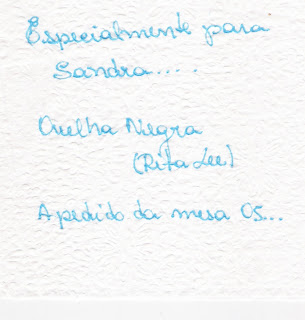 Especialmente para
Sandra.....
Ovelha Negra
(Rita Lee)
A pedido da mesa 05...